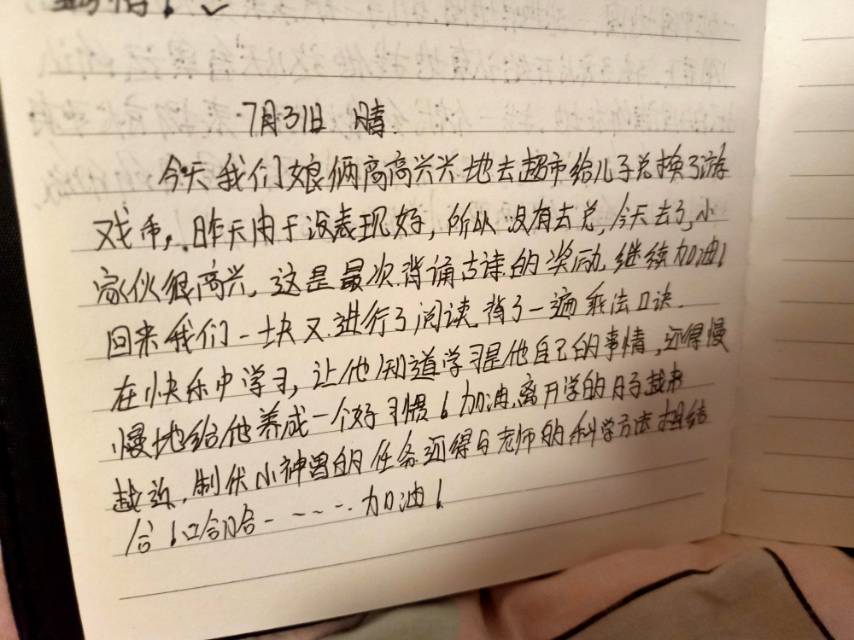 7月31日 晴.
今天我们娘俩高高兴兴地去超市给儿子兑换了游
戏币,昨天由于没表现好,所以没有去兑,今天去了,小
家伙很高兴,这是最次背诵古诗的奖励,继续加油!
回来我们一块又进行了阅读,背了一遍乘法口诀.
在快乐中学习,让他知道学习是他自己的事情,还得慢
慢地给他养成一个好习惯!加油,离开学的日子越来
越近,制伏小神兽的任务还得与老师的科学方法相结
合!哈哈-----.加油!